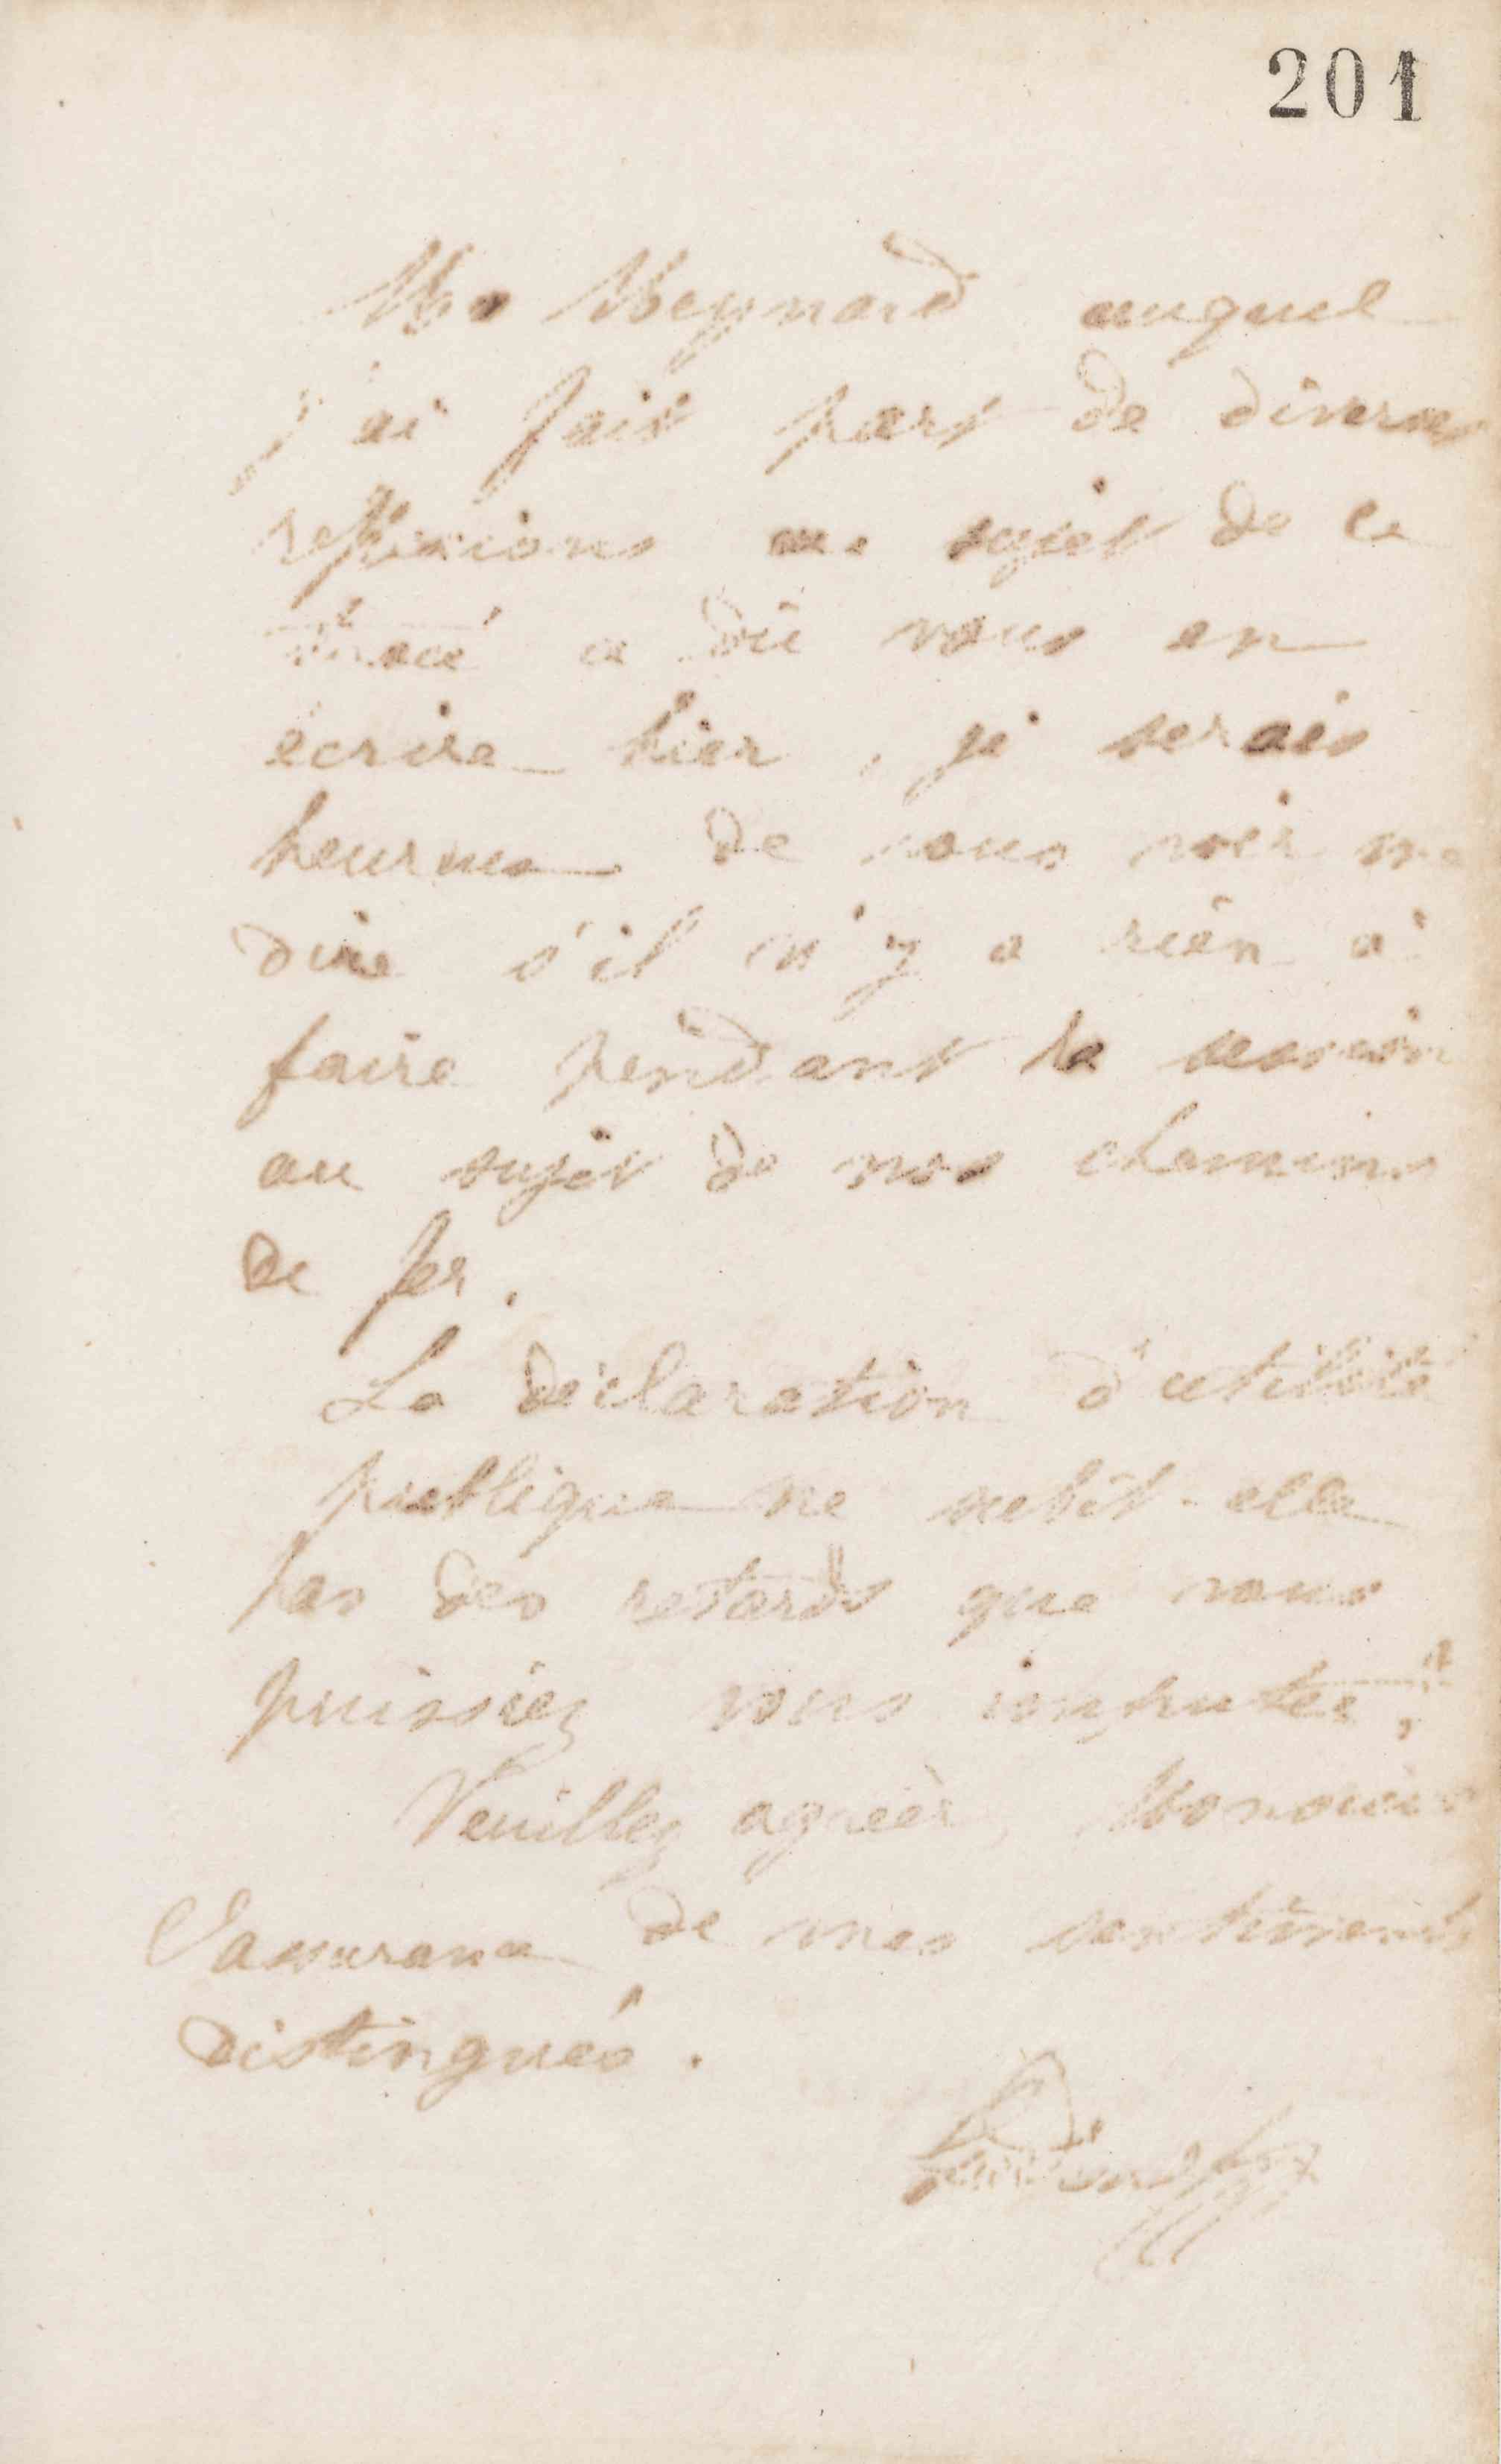 201
Mr Meynard auquel
j'ai fait part de diverses
reflexions au sujet de ce
tracé a dû vous en
écrire hier, je serais
heureux de vous voir me
dire s'il n'y a rien à
faire pendant la session
au sujet de nos chemins
de fer.
La déclaration d'utilité
publique ne subit-elle
pas des retards que nous
puissiez vous imputer?
Veuillez agréer, Monsieur
l'assurance de mes sentiments
distingués.